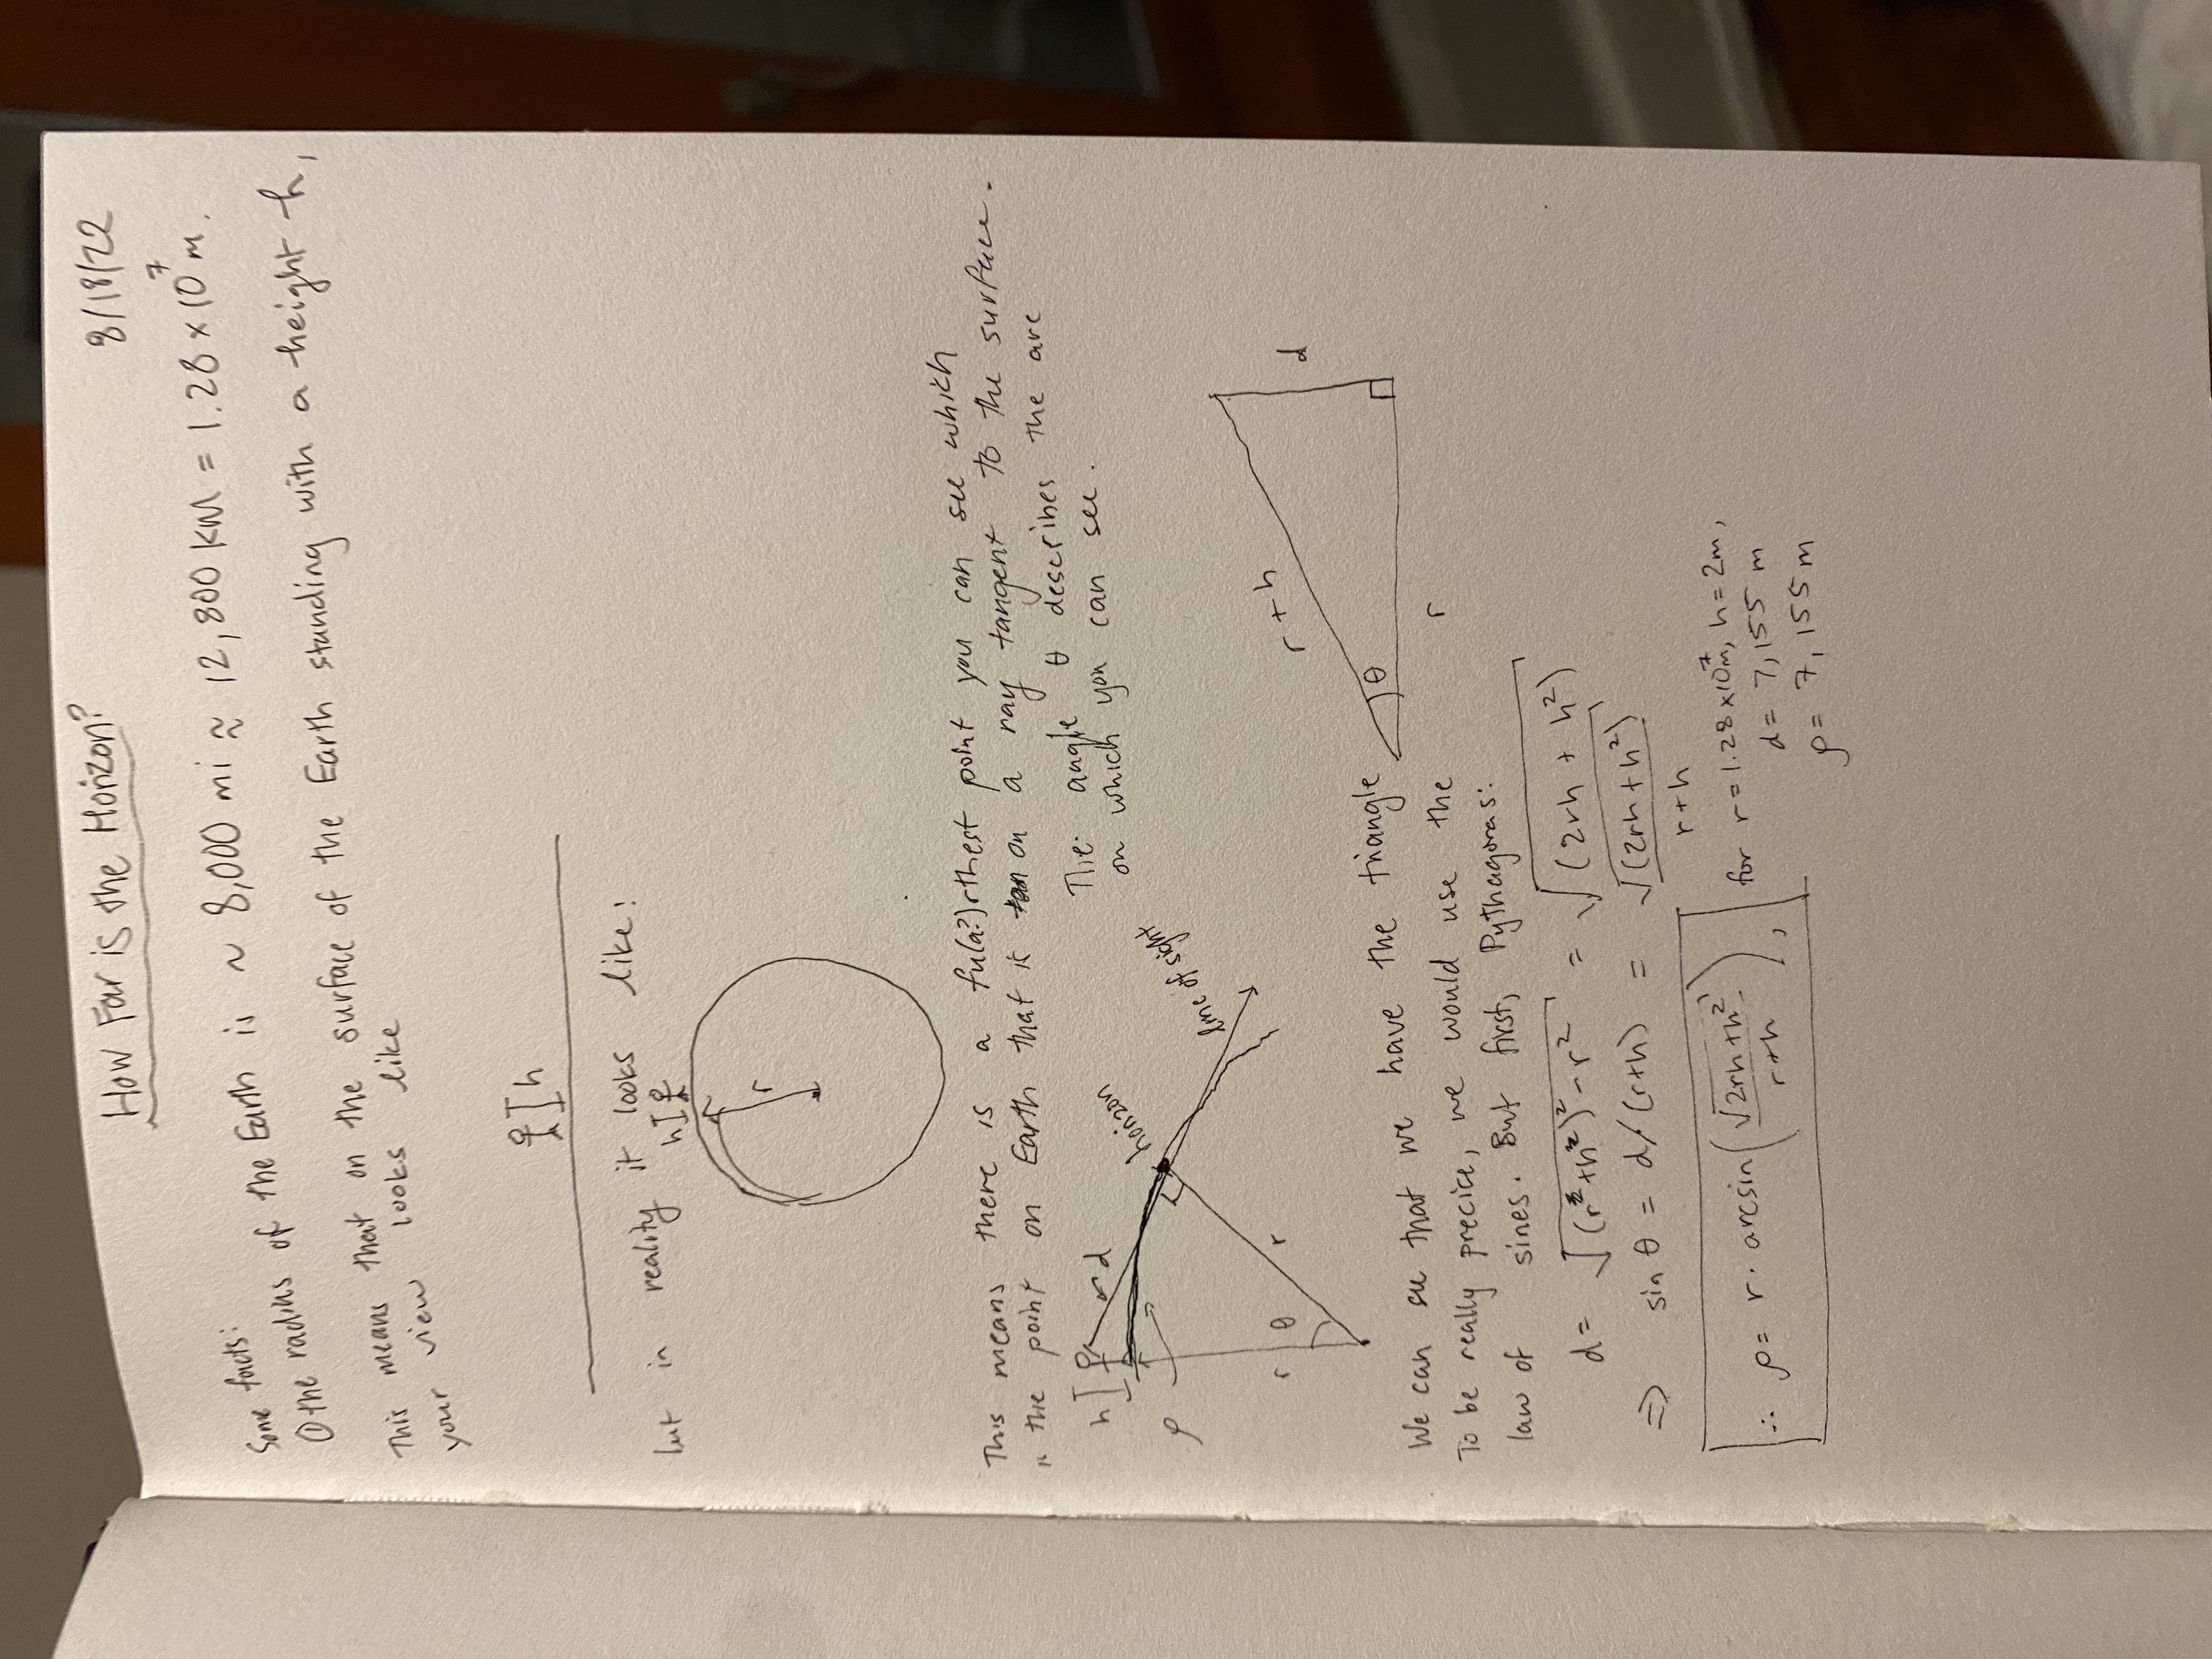 How Far is the Horizon?
8/18/22
Some facts:
① the radius of the Earth is ~ 8,000 mi ≈ 12,800 KM = 1.28 × 10⁷ m.
This means that on the surface of the Earth standing with a height h,
your view looks like
h
but in reality it looks like:
h
r
This means there is a fu(a?)rthest point you can see which
is the point on Earth that is on a ray tangent to the surface.
The angle θ describes the arc
on which you can see.
h
d
horizon
line of sight
ρ
r
θ
r
We can see that we have the triangle
To be really precice, we would use the
law of sines. But first, Pythagoras:
r+h
d
θ
r
d = √((r+h)² - r²) = √(2rh + h²)
⇒ sin θ = d/(r+h) = √(2rh+h²)/(r+h)
∴ ρ = r · arcsin(√(2rh+h²)/(r+h)),
for r = 1.28 × 10⁷m, h = 2m,
d = 7,155 m
ρ = 7,155 m